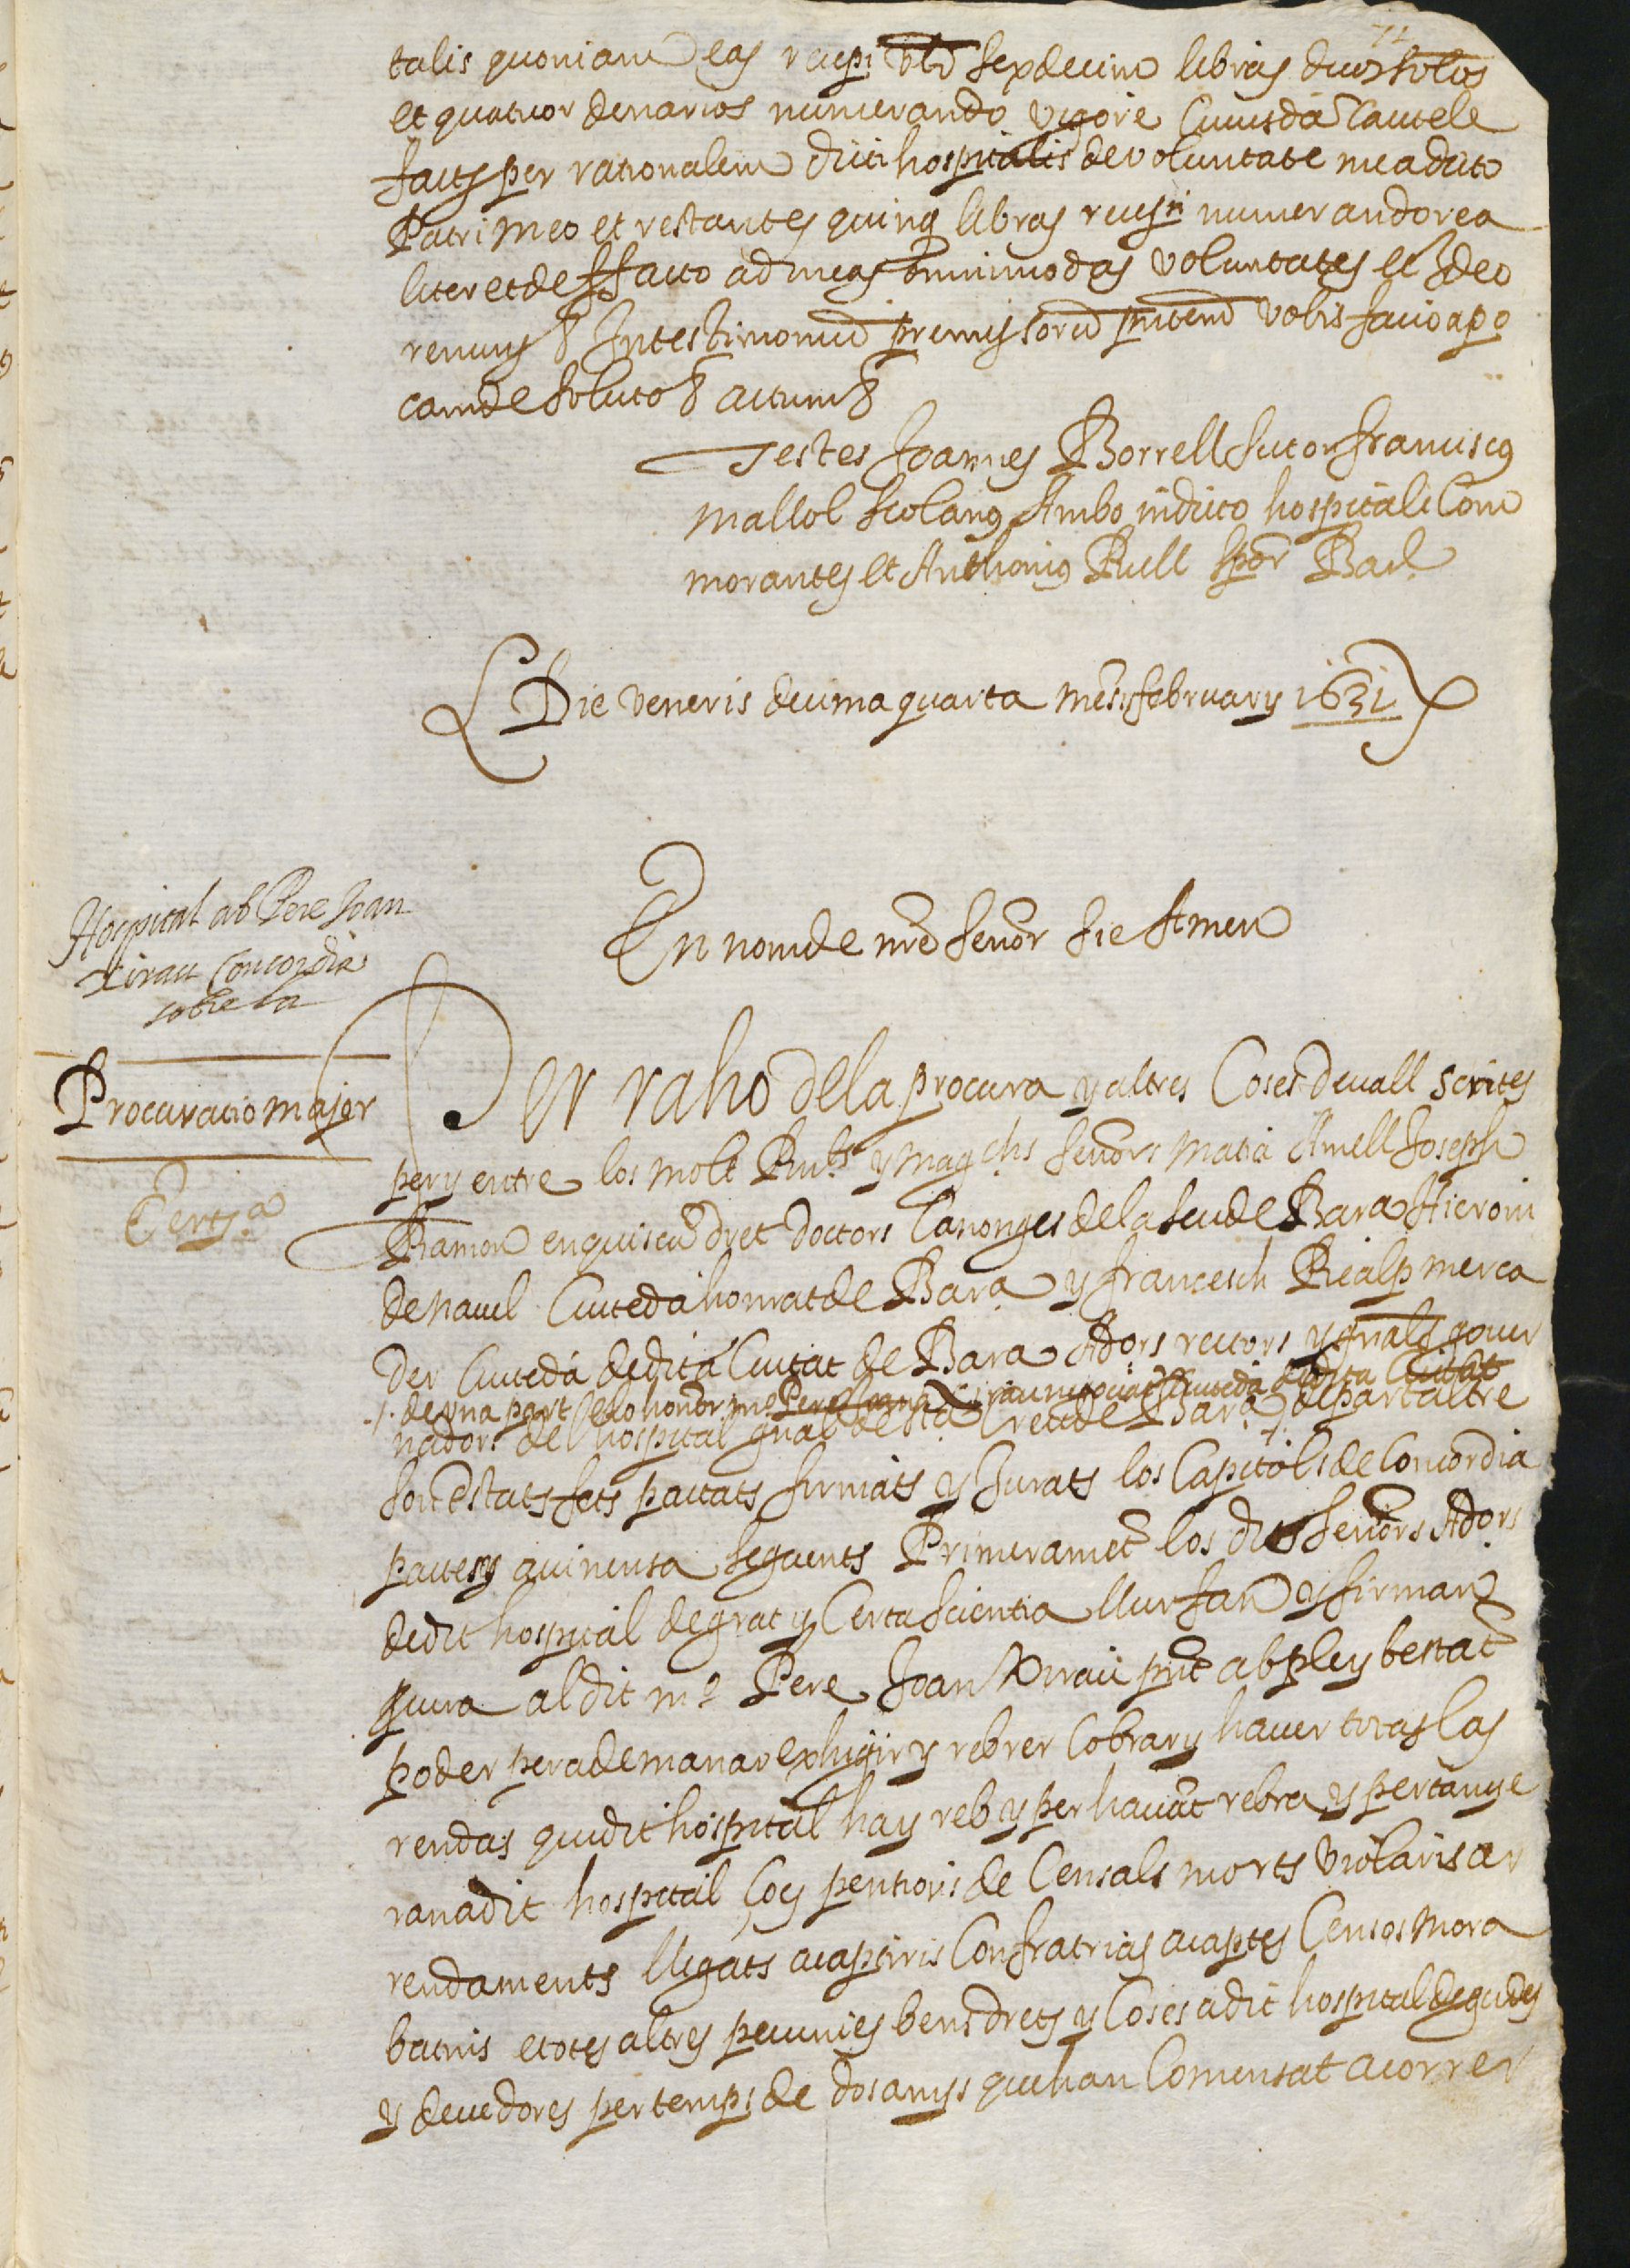 72
talis quoniam eas recepi vltd sexdecim libras duos solidos
et quatuor denarios numerando vigore Cuiusdā Cautele
factę per rationalem dicti hospitalis de voluntate mea dicto
Patri meo et restantes quinq libras recepi numerando rea
liter et de ffacto ad meas omnimodas voluntates et Ideo
renuns & In testimonium premissorum pntem vobis facio apo
cam de soluto & actum &
Testes Joannes Borrell sutor franciscus
mallol scolanus Ambo in dicto hospitali Com
morantes et Anthonius Rull scptor Barne
Die veneris decima quarta mēsis february 1631
En nom de nrē senor sie Amen
Hospital ab Pere Joan
Xirau Concordia
sobre la
Procuratio major
Certª
Per raho de la procura y altres Coses devall scrites
per y entre los molt Rnts y magchs senōrs Matia Amell Joseph
Ramon en quiscū dret doctors Canonges de la seu de Bara Hieronim
de Navel Ciutedá honrat de Bara y francesch Rialp merca
der Ciutedá de dita Ciutat de Bara Adors rectors y gnals gover
./. de vna part e lo honōr mº Pere Joan Xirau negociat Ciutedá de dita Ciutat de part altre
nadors del hospital gnal de Sta Creu de Bara ./.
son estats fets pactats firmats y Jurats los Capitols de Concordia
pactes y avinensa seguents Primeramēt los dits senōrs Adors
de dit hospital de grat y Certa scientia llur fan y firman
pcura al dit mº Pere Joan Xirau pnt ab ple y bestāt
poder pera demanar exhigir y rebrer Cobrar y haver totas las
rendas qui dit hospital ha y reb y per havāt rebra y pertanye
ran a dit hospital ço es pentions de Censals morts violaris ar
rendaments lligats acaptiris Confratrias acaptes Censos mora
batins e totes altres pecunies bens drets y Coses a dit hospital degudes
y devedores per temps de dos anys que han Comensat a correr